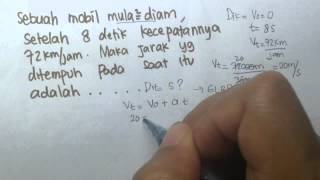 Sebuah mobil mula² diam,
Setelah 8 detik kecepatannya
72 km/jam. Maka jarak yg
ditempuh pada saat itu
adalah ......
Dit = Vo = 0
t = 8s
Vt = 72 km
jam
20
Vt = 72000m = 20 m/s
Dt = s?
Vt = Vo + a t
20 =